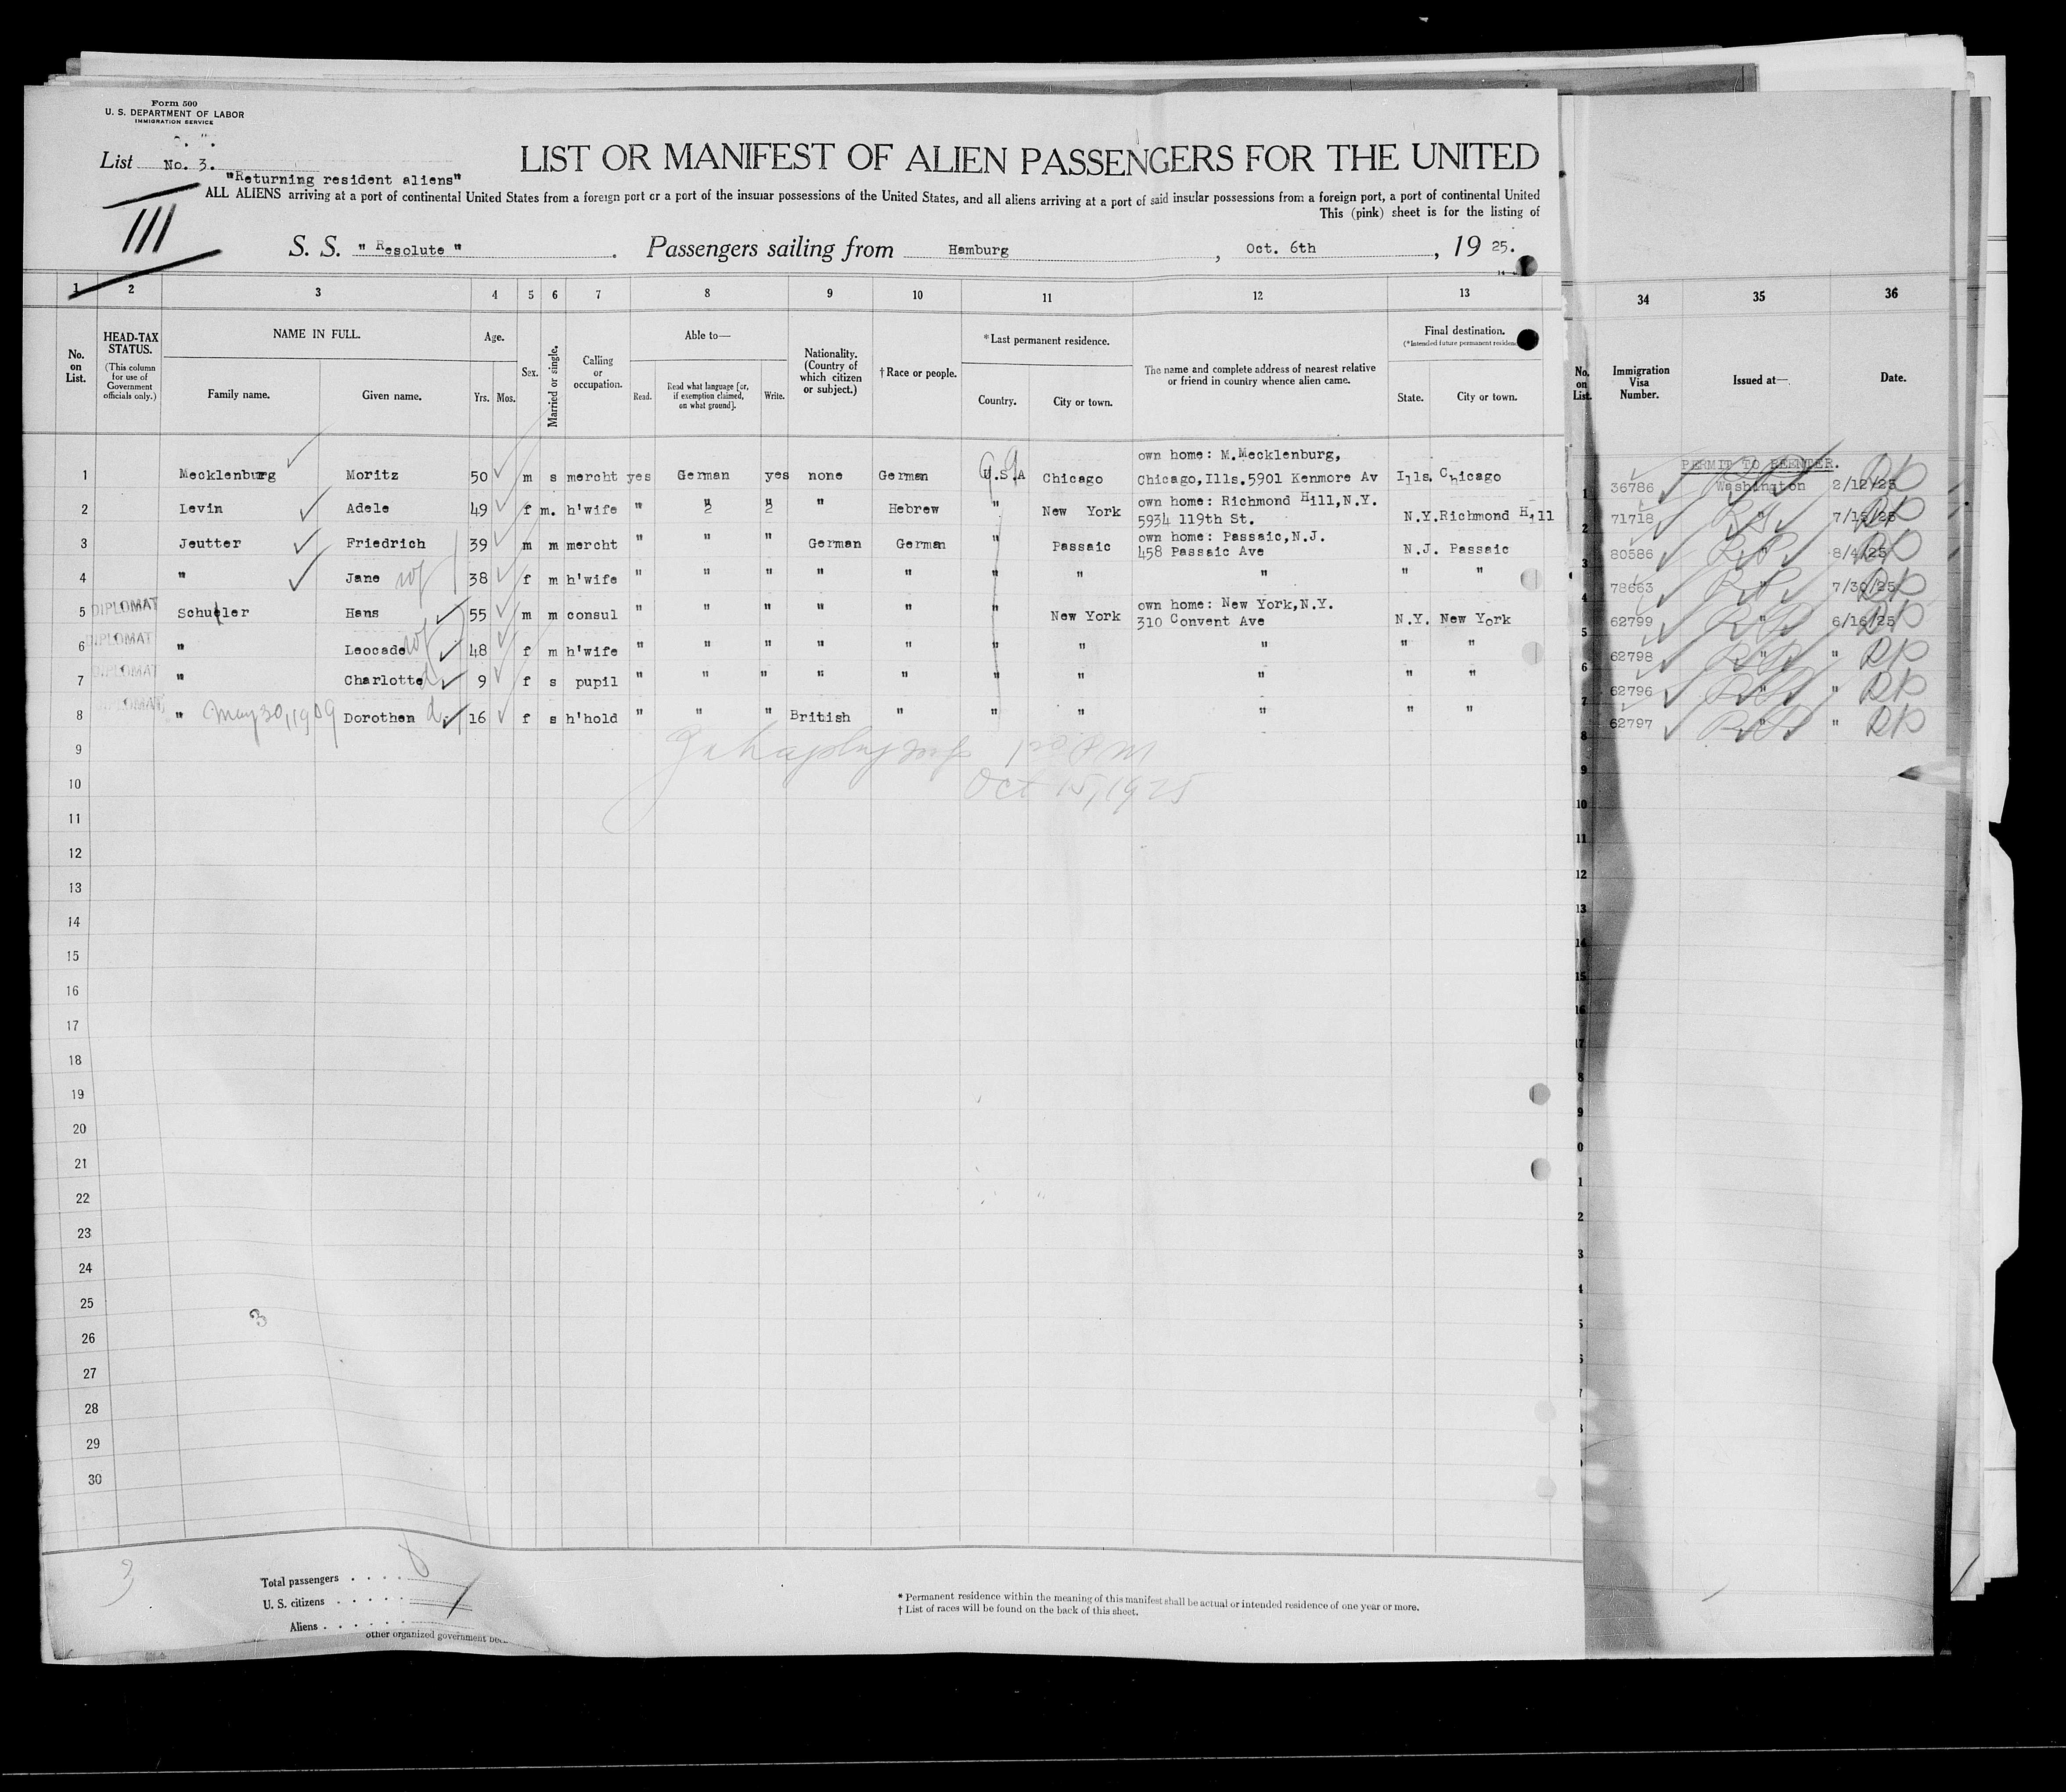 Form 500
U. S. DEPARTMENT OF LABOR
IMMIGRATION SERVICE
List No. 3.
"Returning resident aliens"
III
LIST OR MANIFEST OF ALIEN PASSENGERS FOR THE UNITED
ALL ALIENS arriving at a port of continental United States from a foreign port or a port of the insular possessions of the United States, and all aliens arriving at a port of said insular possessions from a foreign port, a port of continental United
This (pink) sheet is for the listing of
S. S. " Resolute " . Passengers sailing from Hamburg , Oct. 6th , 19 25.
1 2 3 4 5 6 7 8 9 10 11 12 13 34 35 36
No. on List.
HEAD-TAX STATUS.
(This column for use of Government officials only.)
NAME IN FULL.
Family name. Given name.
Age.
Yrs. Mos.
Sex.
Married or single.
Calling or occupation.
Able to—
Read. Read what language [or, if exemption claimed, on what ground]. Write.
Nationality. (Country of which citizen or subject.)
†Race or people.
*Last permanent residence.
Country. City or town.
The name and complete address of nearest relative or friend in country whence alien came.
Final destination.
(*Intended future permanent residence
State. City or town.
No. on List.
Immigration Visa Number.
Issued at—
Date.
own home: M.Mecklenburg,
PERMIT TO REENTER.
1 Mecklenburg Moritz 50 m s mercht yes German yes none German U.S.A Chicago Chicago,Ills.5901 Kenmore Av Ills. Chicago 1 36786 Washington 2/12/25
own home: Richmond Hill,N.Y.
2 Levin Adele 49 f m. h'wife " " " " Hebrew " New York 5934 119th St. N.Y. Richmond Hill 2 71718 " 7/15/25
own home: Passaic,N.J.
3 Jeutter Friedrich 39 m m mercht " " " German German " Passaic 458 Passaic Ave N.J. Passaic 3 80586 " 8/4/25
4 " Jane wf 38 f m h'wife " " " " " " " " " " 4 78663 " 7/30/25
own home: New York,N.Y.
5 DIPLOMAT Schueler Hans 55 m m consul " " " " " " New York 310 Convent Ave N.Y. New York 5 62799 " 6/16/25
6 DIPLOMAT " Leocade wf 48 f m h'wife " " " " " " " " " " 6 62798 " "
7 DIPLOMAT " Charlotte d 9 f s pupil " " " " " " " " " " 7 62796 " "
8 DIPLOMAT " May 30, 1909 Dorothea d. 16 f s h'hold " " " British " " " " " " 8 62797 " "
9 9
Oct 15, 1925
10 10
11 11
12 12
13 13
14 14
15 15
16 16
17 17
18 8
19 9
20 0
21 1
22 2
23 3
24 4
25 5
3
26 6
27 7
28 8
29
30
3
Total passengers . . . .
U. S. citizens . . . . .
Aliens . . . . .
other organized government
* Permanent residence within the meaning of this manifest shall be actual or intended residence of one year or more.
† List of races will be found on the back of this sheet.